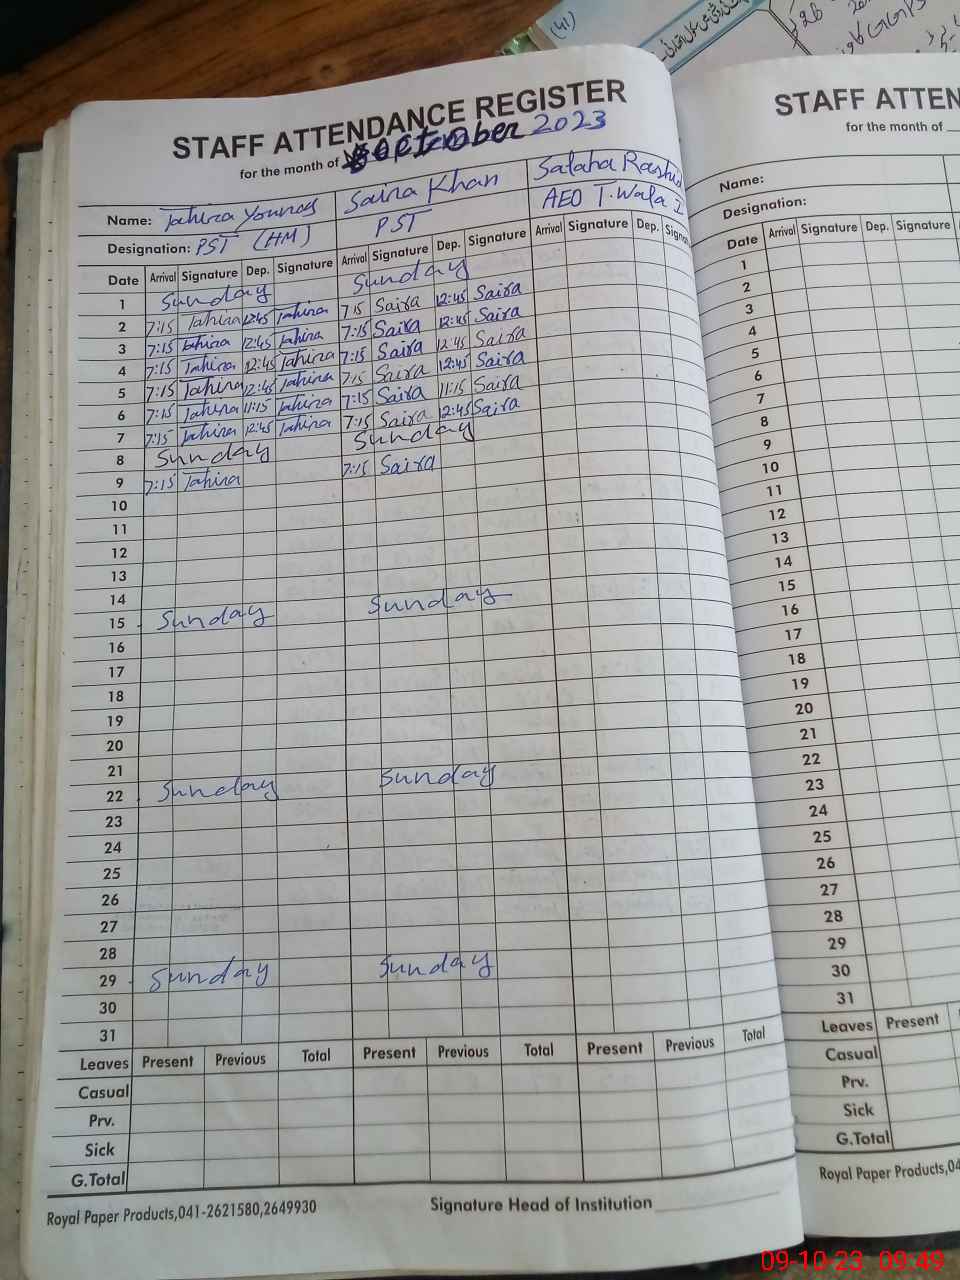 (41)
STAFF ATTENDANCE REGISTER
for the month of October 2023
Name: Tahira Younas Saira Khan Salaha Rashid
Designation: PST (HM) PST AEO T.Wala I
Date Arrival Signature Dep. Signature Arrival Signature Dep. Signature Arrival Signature Dep. Signature
1 Sunday Sunday
2 7:15 Tahira 12:45 Tahira 7:15 Saira 12:45 Saira
3 7:15 Tahira 12:45 Tahira 7:15 Saira 12:45 Saira
4 7:15 Tahira 12:45 Tahira 7:15 Saira 12:45 Saira
5 7:15 Tahira 12:45 Tahira 7:15 Saira 12:45 Saira
6 7:15 Tahira 11:15 Tahira 7:15 Saira 11:15 Saira
7 7:15 Tahira 12:45 Tahira 7:15 Saira 12:45 Saira
8 Sunday Sunday
9 7:15 Tahira 7:15 Saira
10
11
12
13
14
15 Sunday Sunday
16
17
18
19
20
21
22 Sunday Sunday
23
24
25
26
27
28
29 Sunday Sunday
30
31
Leaves Present Previous Total Present Previous Total Present Previous Total
Casual
Prv.
Sick
G.Total
Royal Paper Products,041-2621580,2649930 Signature Head of Institution
STAFF ATTEN
for the month of
Name:
Designation:
Date Arrival Signature Dep. Signature
1
2
3
4
5
6
7
8
9
10
11
12
13
14
15
16
17
18
19
20
21
22
23
24
25
26
27
28
29
30
31
Leaves Present
Casual
Prv.
Sick
G.Total
Royal Paper Products,04
09-10-23 09:49